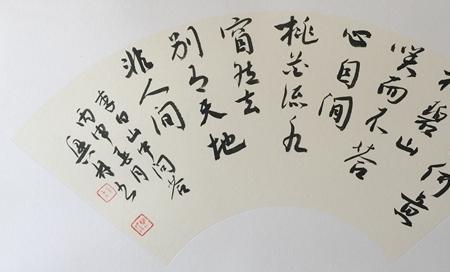 何意
碧山
笑而不答
心自間
桃花流水
窅然去
别有天地
非人间
李白山中问答
丙申春月